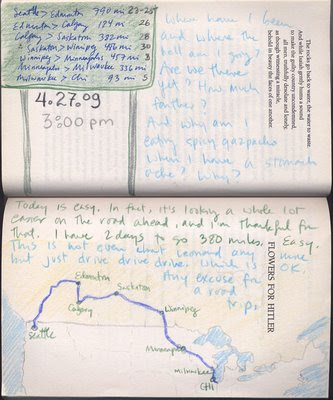 Seattle > Edmonton 790 mi 23-25
Edmonton > Calgary 184 mi 26
Calgary > Saskaton 382 mi 28
Saskaton > Winnipeg 486 mi 30
Winnipeg > Minneapolis 457 mi 3
Minneapolis > Milwaukee 336 mi 5
Milwaukee > Chi 93 mi 5
4.27.09
3:00pm
When have I been
and where the
hell am I going?
Are we there
yet? How much
farther?
And why am I
eating spicy gazpacho
when I have a stomach
ache? Why?
The rocks go back to water, the water to waves.
And while Isaiah gently hums a sound
to make the guilty country uncondemned,
all men, truthfully desolate and lonely,
as though witnessing a miracle,
behold in beauty the faces of one another.
Today is easy. In fact, it's looking a whole lot
easier on the road ahead, and I'm thankful for
that. I have 2 days to go 380 miles. Easy.
This is not even about
but just drive drive drive. Which is OK.
Any excuse for
a road
trip.
FLOWERS FOR HITLER
Edmonton
Saskaton
Calgary
Winnipeg
Seattle
Minneapolis
Milwaukee
CHI